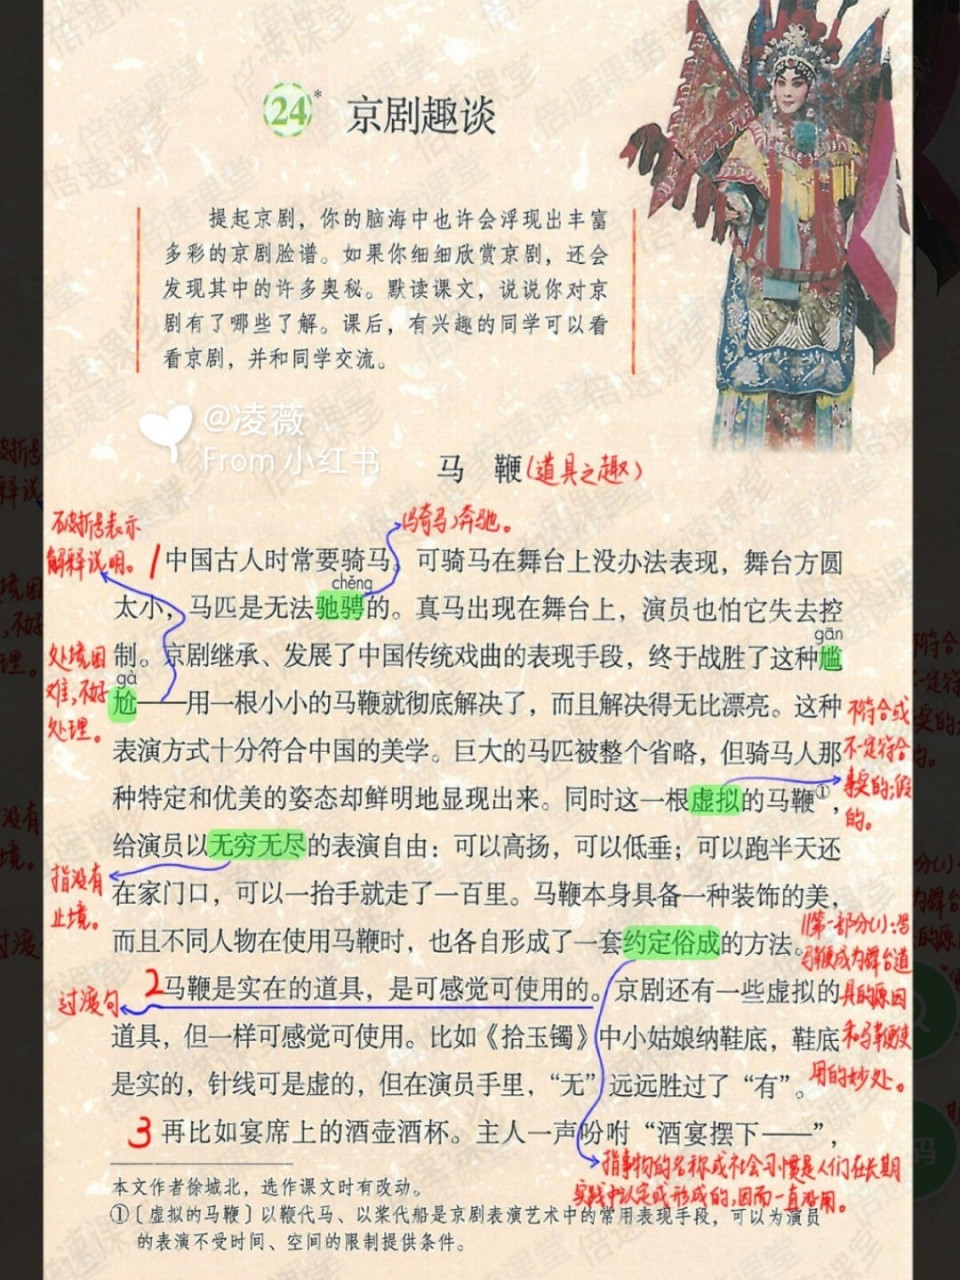 24* 京剧趣谈
提起京剧，你的脑海中也许会浮现出丰富
多彩的京剧脸谱。如果你细细欣赏京剧，还会
发现其中的许多奥秘。默读课文，说说你对京
剧有了哪些了解。课后，有兴趣的同学可以看
看京剧，并和同学交流。
@凌薇
From 小红书
马 鞭(道具之趣)
破折号表示
解释说明。
(骑马)奔驰。
1 中国古人时常要骑马。可骑马在舞台上没办法表现，舞台方圆
chěng
太小，马匹是无法驰骋的。真马出现在舞台上，演员也怕它失去控
gān
制。京剧继承、发展了中国传统戏曲的表现手段，终于战胜了这种尴
处境困
难，不好
处理。
gà
尬——用一根小小的马鞭就彻底解决了，而且解决得无比漂亮。这种
表演方式十分符合中国的美学。巨大的马匹被整个省略，但骑马人那
种特定和优美的姿态却鲜明地显现出来。同时这一根虚拟的马鞭①，
不符合或
不一定符合
事实的；假
的。
给演员以无穷无尽的表演自由：可以高扬，可以低垂；可以跑半天还
在家门口，可以一抬手就走了一百里。马鞭本身具备一种装饰的美，
指没有
止境。
而且不同人物在使用马鞭时，也各自形成了一套约定俗成的方法。
第一部分(1)：
马鞭成为舞台道
具的原因
和马鞭使
用的妙处。
2 马鞭是实在的道具，是可感觉可使用的。京剧还有一些虚拟的
过渡句
道具，但一样可感觉可使用。比如《拾玉镯》中小姑娘纳鞋底，鞋底
是实的，针线可是虚的，但在演员手里，“无”远远胜过了“有”。
3 再比如宴席上的酒壶酒杯。主人一声吩咐“酒宴摆下——”，
指事物的名称或社会习惯是人们在长期
实践中认定或形成的，因而一直沿用。
本文作者徐城北，选作课文时有改动。
①〔虚拟的马鞭〕以鞭代马、以桨代船是京剧表演艺术中的常用表现手段，可以为演员
的表演不受时间、空间的限制提供条件。